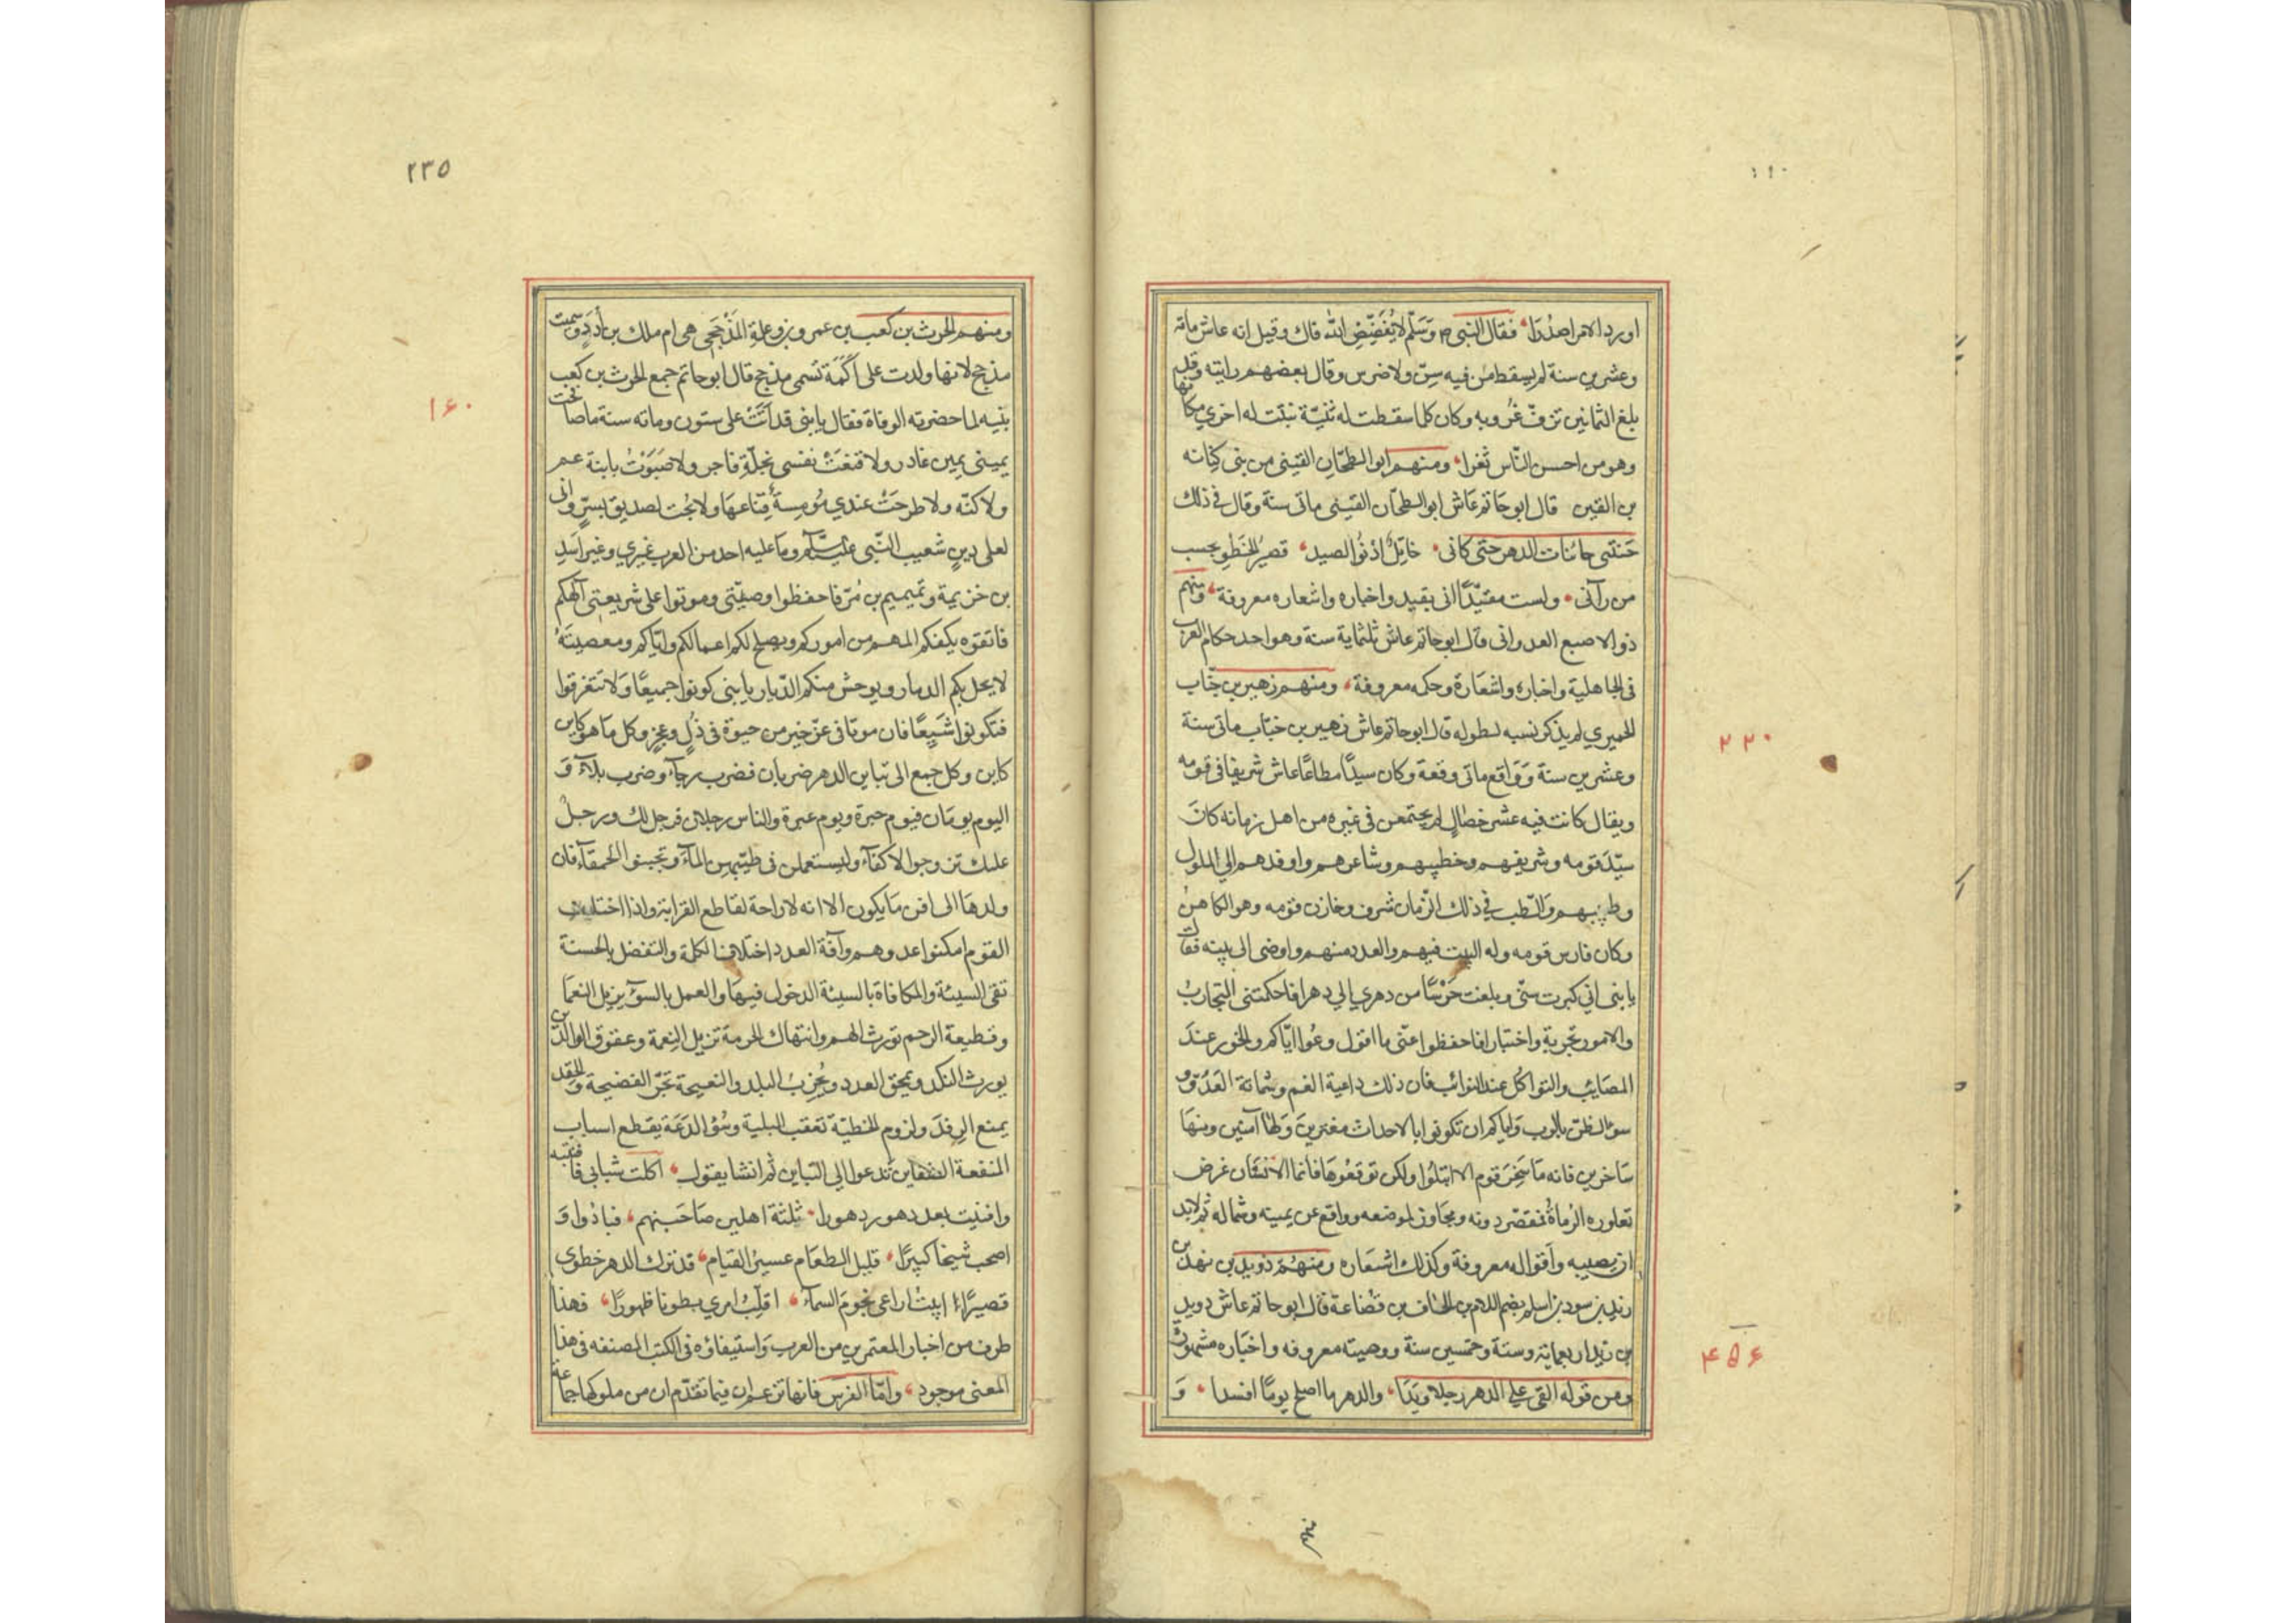 اورد الامر اصدرا، فقال النبی ص وسلّم لا یُفَضِّضِ اللّٰه فاك وقیل انه عاش مائة
وعشرین سنة لم یسقط من فیه سِنّ ولا ضرس وقال بعضهم رایته وقد
بلغ الثمانین تزفّ غُرُوبه وکان کلما سقطت له ثنیّة نبتت له اخري مکانها
وهو من احسن النّاس ثغرا، ومنهم ابو الطمَحّان القینی من بنی کنانه
بن القین قال ابو حاتم عاش ابو الطمحّان القینی ماتی سنة وقال في ذلك
حَنتَنی حانیات الدهر حتی کانی، خاتِلٌ ادْنُوا لصید، قصیرُ الخَطوِ یحسب
من رآنی، ولست مقیّدًا انی بقید واخباره واشعاره معروفة، ومنهم
ذو الاصبع العدوانی قال ابو حاتم عاش ثلثمایة سنة وهو احد حکام العرب
فی الجاهلیة واخباره واشعاره وحکمه معروفة، ومنهم زهیر بن جنّاب
الحمیري لم یذکر نسبه لطوله قال ابو حاتم عاش زهیر بن خبّاب ماتی سنة
وعشرین سنة وَوَاقع ماتی وقعة وکان سیدًا مطاعًا عاش شریفا فی قومه
ویقال کانت فیه عشر خصالٍ لم یجتمعن فی غیره من اهل زمانه کان
سیّدَ قومه وشریفهم وخطیبهم وشاعرهم واوفدهم الي الملوك
وطبیبهم والطب في ذلك الزّمان شرف وخازن قومه وهو الکاهنُ
وکان فارس قومه وله البیت فیهم والعدد منهم واوصی الی بنیه فقال
یا بنی انی کبرت سنّی وبلغت حَرْسًا من دهري فاحکمتنی التجاربُ
والامور تجربة واختبار فاحفظوا عنّی ما اقول وعُوا ایّاکم والخور عندَ
المصَایب والتواکُل عند النوائب فان ذلك داعیة الغم وشماتة العَدُوّ و
سوء الظن بالرب وایاکم ان تکونوا بالاحداث مغترین وَلها آمنین ومنها
سَاخرین فانه مَا سَخِرَ قوم الا ابتلُوا ولکن توقعُوهَا فانما الانسَان غرض
تعاوره الرُماةُ فمقصّر دونه ومجَاوز لموضعه وواقع عن یمینه وشماله ثم لابد
ان یصیبه وَاَقواله معروفة وکذلك اشعَاره ومنهم دوید بن نهد بن
زید بن سود بن اسلم بضم اللام بن الحاف بن قضاعة قال ابو حاتم عاش دوید
بن زید اربعمایة وستة وخمسین سنة ووصیته معروفه واخباره مشهورة
ومن قوله القی علي الدهر رجلا ویَدَا، والدهر ما اصلح یومًا افسدا، وَ
منهم
۲۲۰
۴۵۶
۲۳۵
۱۶۰
ومنهم الحرث بن کعب بن عمرو بن وعلة المَذْحَجی هی ام ملك بن أدَدٍ وسمیت
مذحج لانها ولدت علی اَکَمَة تسمی مذحج قال ابو حاتم جمع الحرث بن کعب
بنیه لما حضرته الوفاة فقال یا بنی قد اَتَتْ علی ستون ومائه سنة ما صافحت
یمینی یمین غادر ولا قنعَتْ نفسی بخلّةِ فاجر ولا صَبَوْتُ بابنة عم
ولا کنّه ولا طرحَتْ عندي مُومِسةٌ قِنَاعهَا ولا بُحت لصدیق بسِرٍّ وانی
لعلی دینِ شعیب النّبی علیه السّلام ومَا علیه احد من العرب غیري وغیر اَسَدِ
بن خزیمة وتمیم بن مُرّ فاحفظوا وصیّتی وموتوا علی شریعتی آلهکم
فاتقوه یکفکم المهم من امورکم ویصلح لکم اعمالکم وایّاکم ومعصیتَهُ
لا یحل بکم الدمار ویوحش منکم الدّیار یا بنی کونوا جمیعًا وَلا تتفرقوا
فتکونوا شَیِعًا فان موتا فی عزّ خیر من حیوة فی ذلٍ وعجزٍ وکل ما هو کاین
کاین وکل جمع الی تباین الدهر ضربان فضرب رجآء وضرب بلآء وَ
الیوم یومَان فیوم حبرة ویوم عبرة والناس رجلان فرجل لك ورجلٌ
علیك تزوجوا الاکفآء ولیستعملن فی طیبهن المآء وتجنبوا الحمقآء فان
ولدهَا الی افن مَا یکون الا انه لا راحة لقاطع القرابة واذا اختلف
القوم امکنوا عدوهم وآفة العدد اختلاف الکلمة والتفضل بالحسنة
تقی السیئة والمکافاة بالسیئة الدخول فیهَا والعمل بالسوٓء یزیل النعمَا
وقطیعة الرحم تورث الهم وانتهاك الحرمة تزیل النِعمة وعقوق الوالدین
یورث النکد ویمحق العدد ویُخرِبُ البلد والنصیحة تجرّ الفضیحة والحقد
یمنع الرِفدَ ولزوم الخطیّة تعقب البلیة وسُوُ الدعَة یقطع اسباب
المنفعة الضغاین تدعوا الي التباین ثم انشا یقول، اکلت شبابی فافنیته
وافنیت بعد دهور دهورا، ثلثة اهلین صَاحَبنهم، فبادُوا وَ
اصحب شیخًا کبیرًا، قلیل الطعَام عسیرُ القیَام، قد ترك الدهر خطوی
قصیرًا، ابیتُ اراعی نجومَ السمآء، اقلِّبُ امري بطونا ظهورًا، فهذا
طرف من اخبار المعتمرین من العرب واستیفاؤه فی الکتب المصنفه فی هذا
المعنی موجود، وامّا الفرَس فانها تزعم ان فیما تقدّم ان من ملوکها جماعة